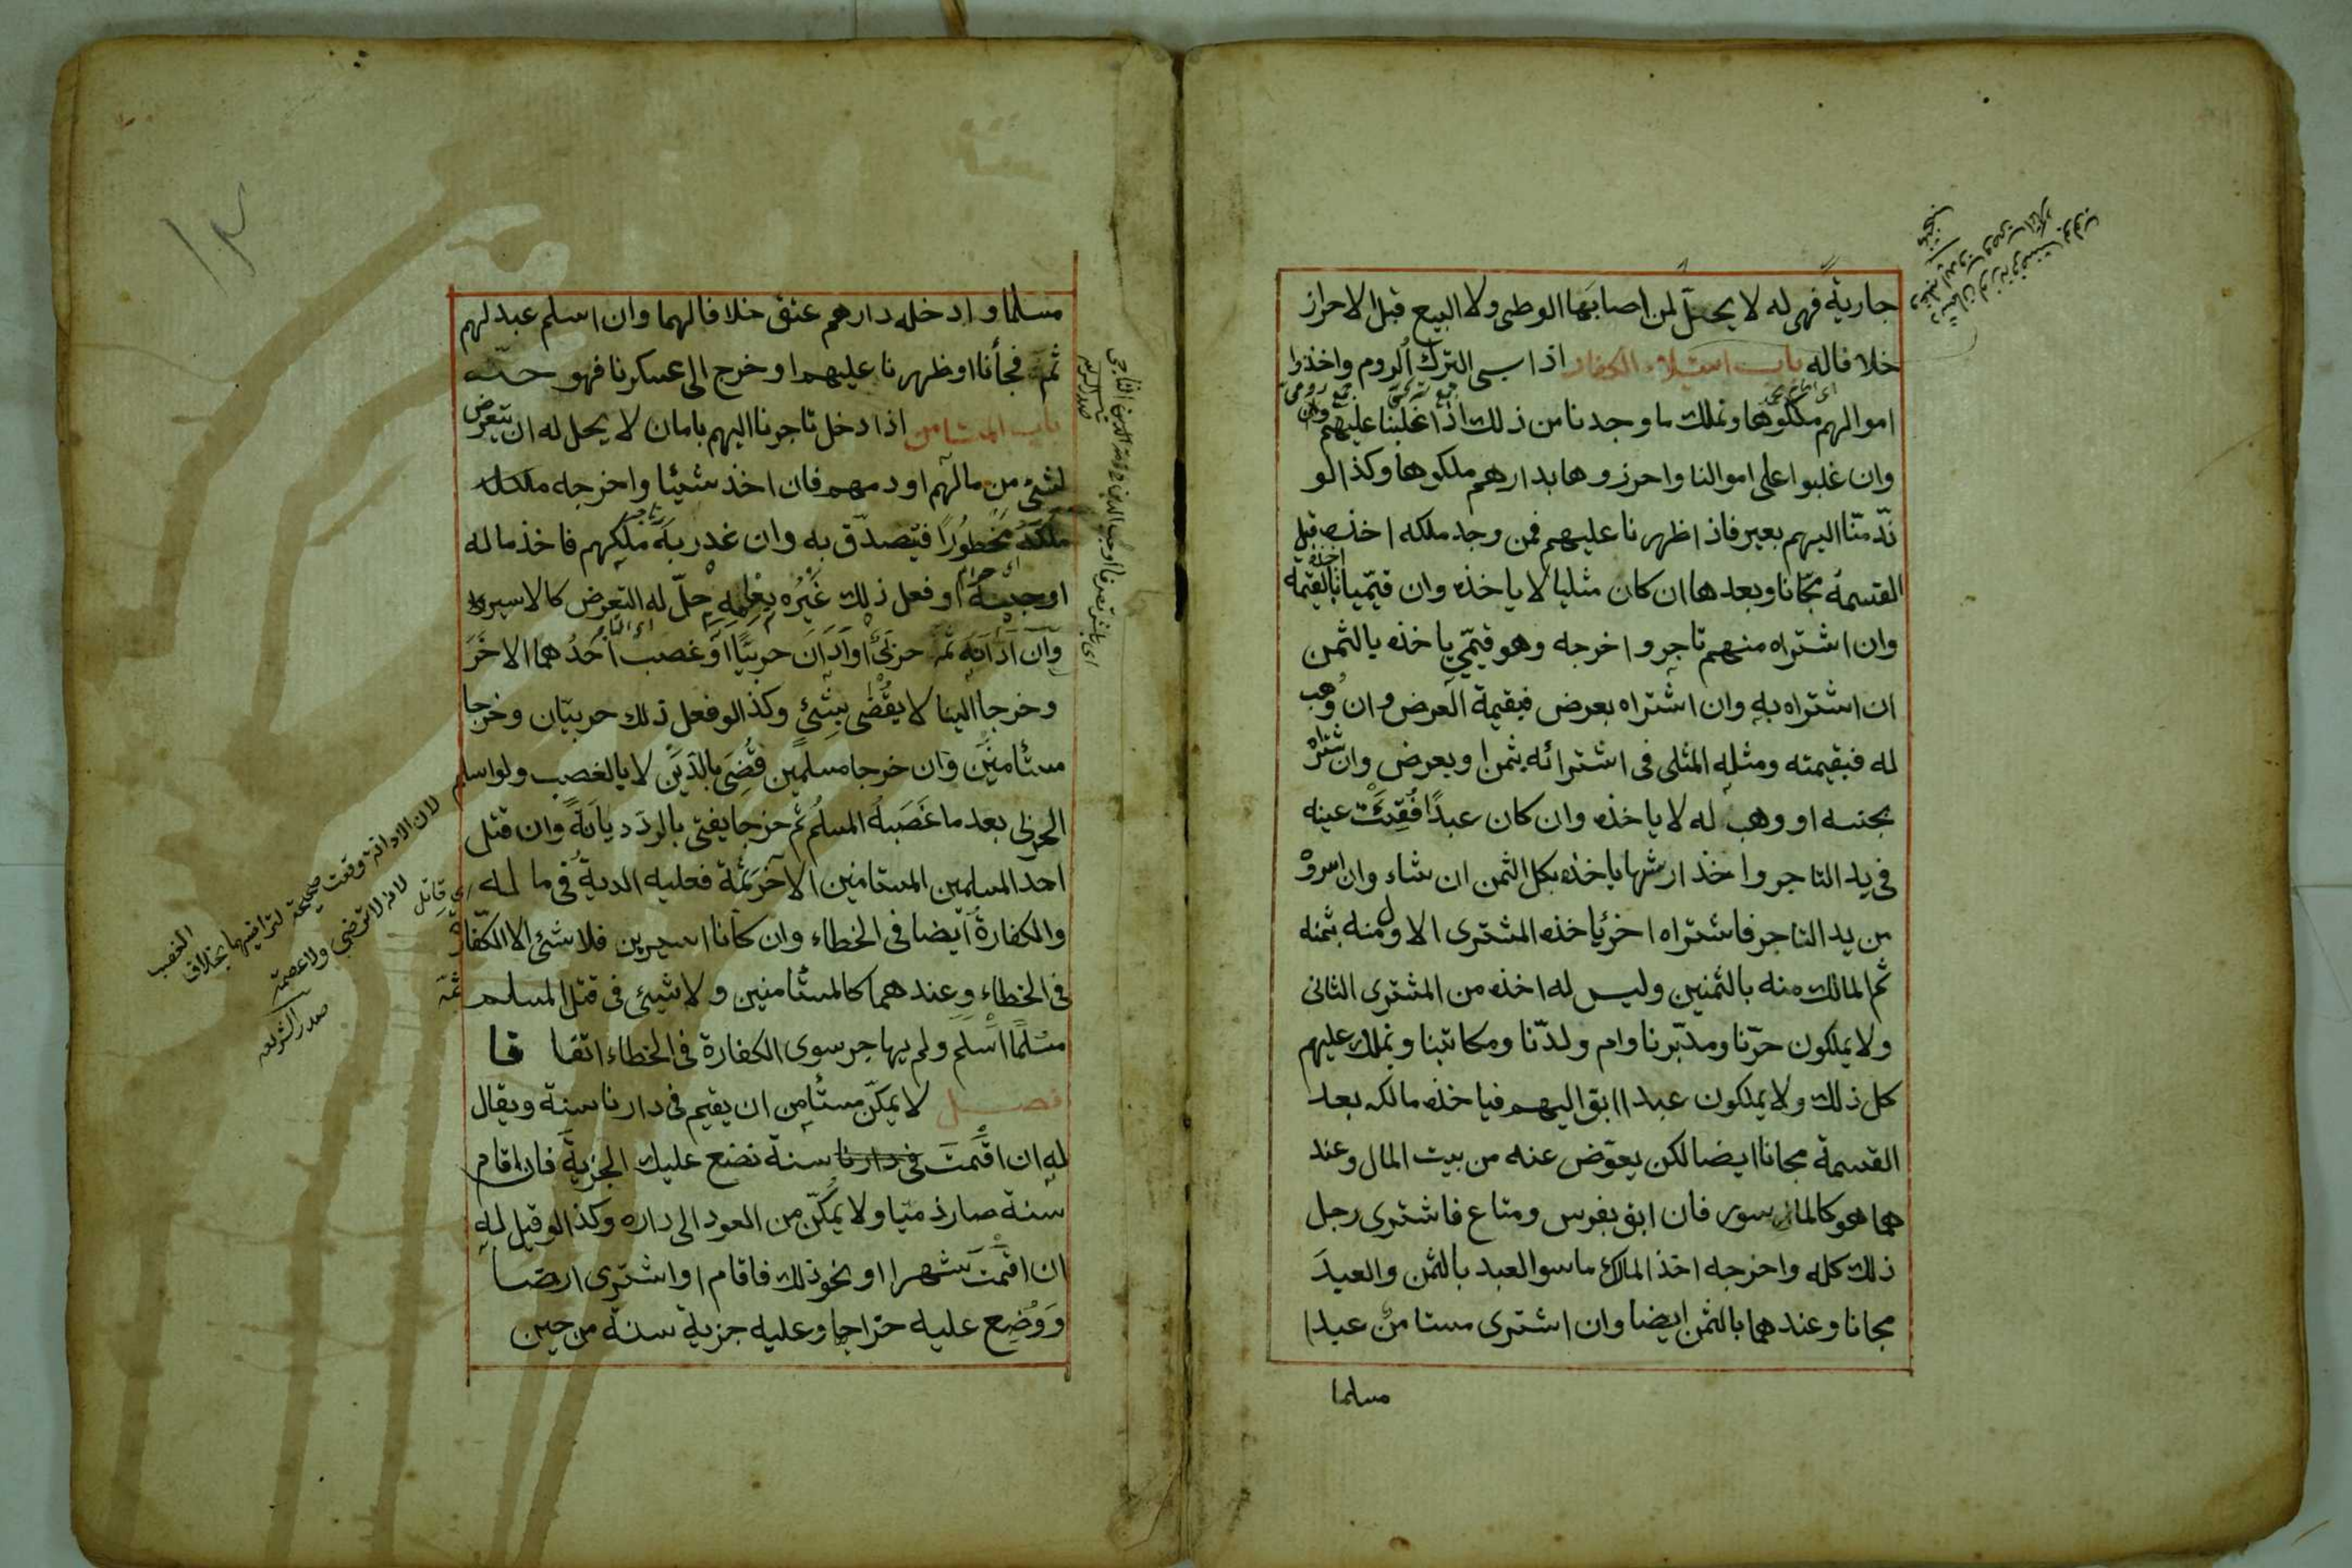 جارية فهى له لا يحل لمن اصابها الوطى ولا البيع قبل الاحراز
خلافا له باب استيلاء الكفار اذا سبى الترك الروم واخذوا
اموالهم ملكوها ونملك ما وجدنا من ذلك اذا غلبنا عليهم وان
وان غلبوا على اموالنا واحرزوها بدارهم ملكوها وكذا لو
ندّ منّا اليهم بعير فاذا ظهرنا عليهم فمن وجد ملكه اخذه قبل
القسمة مجّانا وبعدها ان كان مثليا لا ياخذه وان قيّميا اخذه بالقيمة
وان اشتراه منهم تاجر واخرجه وهو قيّمي ياخذه بالثمن
ان اشتراه به وان اشتراه بعرض فبقيمة العرض وان وُهب
له فبقيمته ومثله المثلى فى اشترائه بثمن او بعرض وان شتراه
بجنسه او وهب له لا ياخذه وان كان عبدًا فُقِئَت عينه
فى يد التاجر واخذ ارشها ياخذه بكل الثمن ان شاء وان اسروْ
من يد التاجر فاشتراه اخر ياخذه المشترى الاول منه بثمنه
ثم المالك منه بالثمنين وليس له اخذه من المشترى الثانى
ولا يملكون حرّنا ومدبّرنا وام ولدّنا ومكاتبنا ونملك عليهم
كل ذلك ولا يملكون عبدا ابق اليهم فياخذه مالكه بعد
القسمة مجانا ايضا لكن يعوّض عنه من بيت المال وعند
هما هو كالماسور فان ابق بفرس ومتاع فاشترى رجل
ذلك كله واخرجه اخذ المالك ما سوا العبد بالثمن والعبدَ
مجانا وعندهما بالثمن ايضا وان اشترى مستامن عبدا
مسلما
مسلما وادخله دارهم عتق خلافا لهما وان اسلم عبد لهم
ثمّه فجأنا او ظهرنا عليهم او خرج الى عسكرنا فهو حرّ
باب المستامن اذا دخل تاجرنا اليهم بامان لا يحل له ان يتعرض
لشئ من مالهم او دمهم فان اخذ شيئا واخرجه
مَلَكَهُ مَحْظُورًا فيتصدّق به وان غدر به ملكهم فاخذ ماله
او حبسه او فعل ذلك غَيْرُه بعِلمِهِ حلّ له التعرض كالاسير
وان ادانه ثمّه حربىّ او ادان حربيًّا او غصب احدُهما الاخرَ
وخرجا الينا لا يُقْضى بشئ وكذا لو فعل ذلك حربيّان وخرجا
مستأمنَين وان خرجا مسلمين قُضِىَ بالدَين لا بالغصب ولو اسلم
الحربى بعد ما غَصَبهُ المسلمُ ثم خرجا يفتى بالردّ ديانةً وان قتل
احد المسلمين المستامنين الآخر ثَمّة فعليه الدية فى ماله
والكفارةُ ايضا فى الخطاء وان كانا اسيرين فلا شئ الا الكفّارة
فى الخطاء وعندهما كالمستأمنين ولا شيئ فى قتل المسلم ثمّه
مسْلمًا اسْلم ولم يهاجر سوى الكفارة فى الخطاء اتفاقا
فصل لا يمكّن مستأمِن ان يقيم فى دارنا سنة ويقال
له ان اقَمتَ فى دارنا سنة نضع عليك الجزيةَ فان اقام
سنة صار ذميّا ولا يمكّن من العود الى داره وكذا لو قيل له
ان اقمتَ شهرا او نحو ذلك فاقام او اشترى ارضا
وَوُضِع عليه خراجها وعليه جزية سنة من حين
لان الادانة وقعت صحيحة لتراضيهما بخلاف
الغصب
لانه لا تراضى ولا عصمة
صدر الشريعه